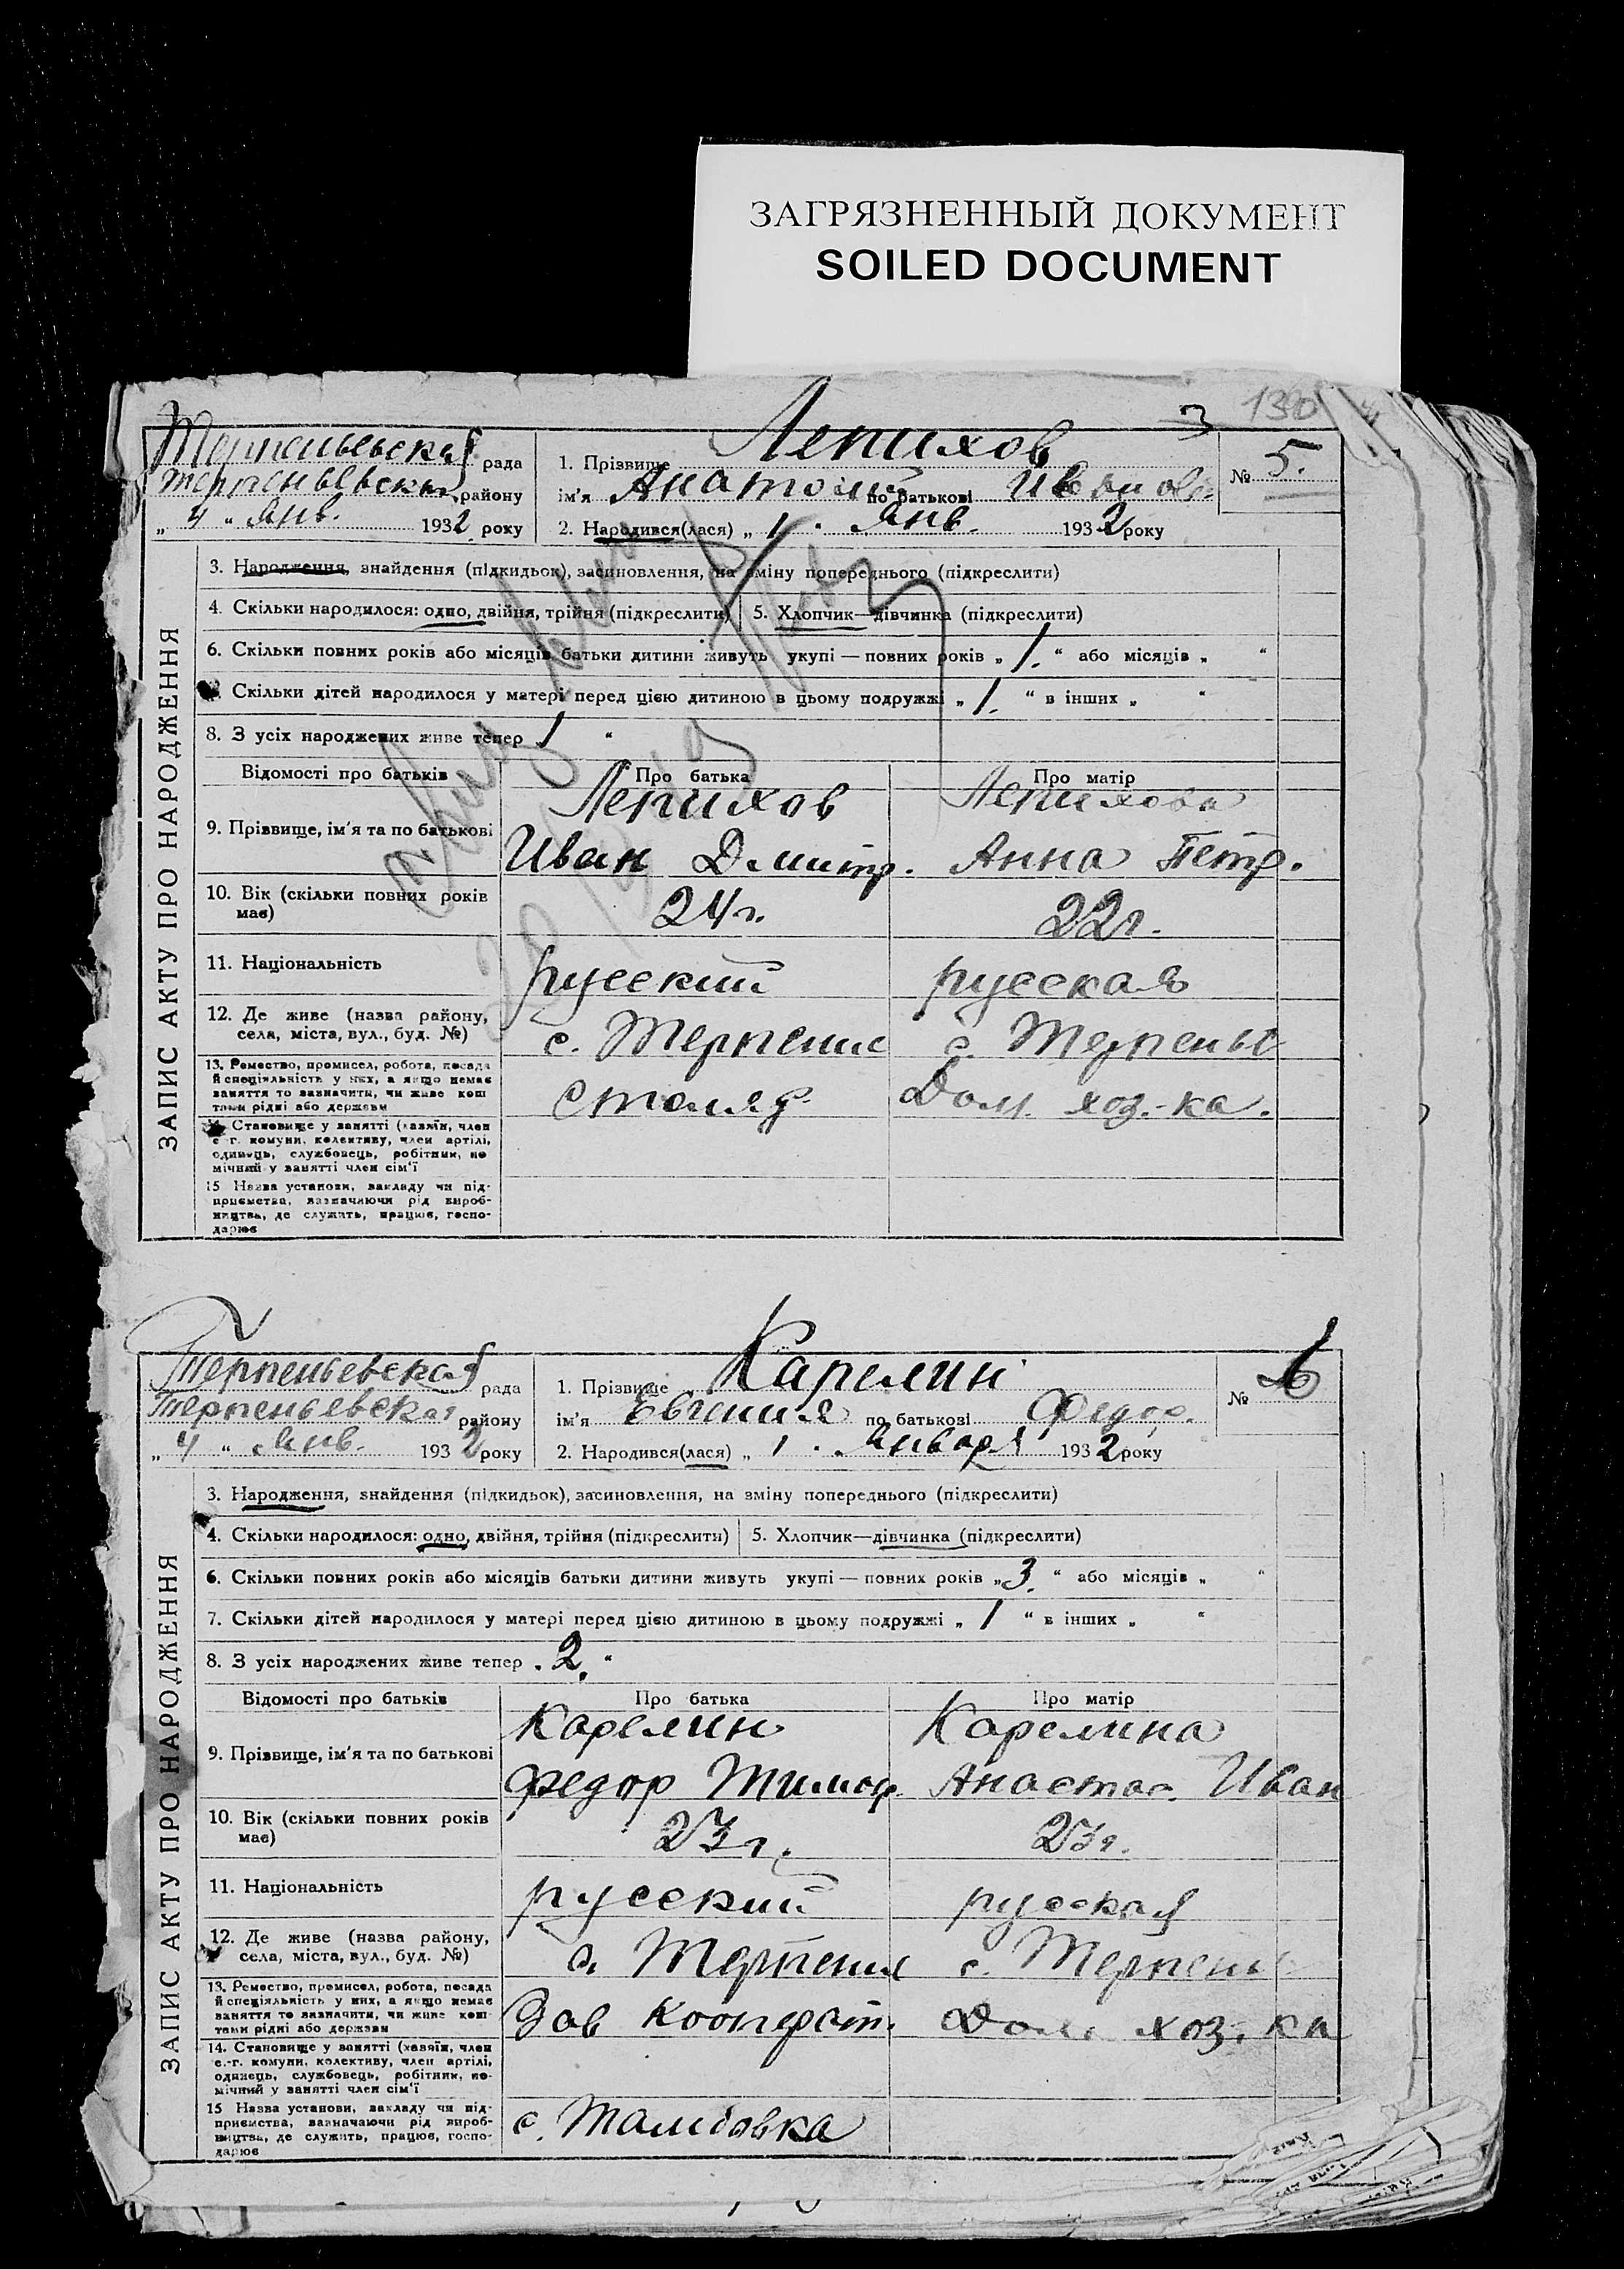 ЗАГРЯЗНЕННЫЙ ДОКУМЕНТ
SOILED DOCUMENT
3 1380
Терпеньевская рада
Терпеньевский району
„ 4 “ Янв. 1932 року
1. Прізвище Лепихов
ім'я Анатолий по батькові Иванов.
2. Народився(лася) „ 1 . Янв. 1932 року
№ 5.
ЗАПИС АКТУ ПРО НАРОДЖЕННЯ
3. Народження, знайдення (підкидьок), засиновлення, на зміну попереднього (підкреслити)
4. Скільки народилося: одно, двійня, трійня (підкреслити) 5. Хлопчик—дівчинка (підкреслити)
6. Скільки повних років або місяців батьки дитини живуть укупі — повних років „ 1. “ або місяців „ “
Скільки дітей народилося у матері перед цією дитиною в цьому подружжі „ 1. “ в інших „ “
8. З усіх народжених живе тепер 1 “
Відомості про батьків Про батька Про матір
9. Прізвище, ім'я та по батькові
Лепихов Лепихова
Иван Дмитр. Анна Петр.
10. Вік (скільки повних років має) 24г. 22г.
11. Національність русский русская
12. Де живе (назва району,
села, міста, вул., буд. №) с. Терпение с. Терпенье
13. Ремество, промисел, робота, посада
й спеціяльність у них, а якщо немає
заняття то зазначити, чи живе кош
тами рідні або держави
Столяр Дом. хоз.-ка.
Становище у занятті (хазяїн, член
с г. комуни, колективу, член артілі,
одинець, службовець, робітник, по
мічний у занятті член сім'ї
15 Назва установи, закладу чи під-
приємства, зазначаючи рід вироб-
ництва, де служить, працює, госпо-
дарює
Терпеньевская рада
Терпеньевская району
„ 4 “ Янв. 1932 року
1. Прізвище Карелин
ім'я Евгения по батькові Федор.
2. Народився(лася) „ 1 . Января 1932 року
№ 6
ЗАПИС АКТУ ПРО НАРОДЖЕННЯ
3. Народження, знайдення (підкидьок), засиновлення, на зміну попереднього (підкреслити)
4. Скільки народилося: одно, двійня, трійня (підкреслити) 5. Хлопчик—дівчинка (підкреслити)
6. Скільки повних років або місяців батьки дитини живуть укупі — повних років „ 3. “ або місяців „ “
7. Скільки дітей народилося у матері перед цією дитиною в цьому подружжі „ 1 “ в інших „ “
8. З усіх народжених живе тепер . 2. “
Відомості про батьків Про батька Про матір
9. Прізвище, ім'я та по батькові
Карелин Карелина
Федор Тимоф. Анастас. Иван
10. Вік (скільки повних років має) 23г. 23г.
11. Національність русский русская
12. Де живе (назва району,
села, міста, вул., буд. №) с. Терпение с. Терпень
13. Ремество, промисел, робота, посада
й спеціяльність у них, а якщо немає
заняття то зазначити, чи живе кош
тами рідні або держави
Зав кооперат. Дом. хоз. ка
14. Становище у занятті (хазяїн, член
с.-г. комуни, колективу, член артілі,
одинець, службовець, робітник, по-
мічний у занятті член сім'ї
15 Назва установи, закладу чи під-
приємства, зазначаючи рід вироб-
ництва, де служить, працює, госпо-
дарює
с. Тамбовка